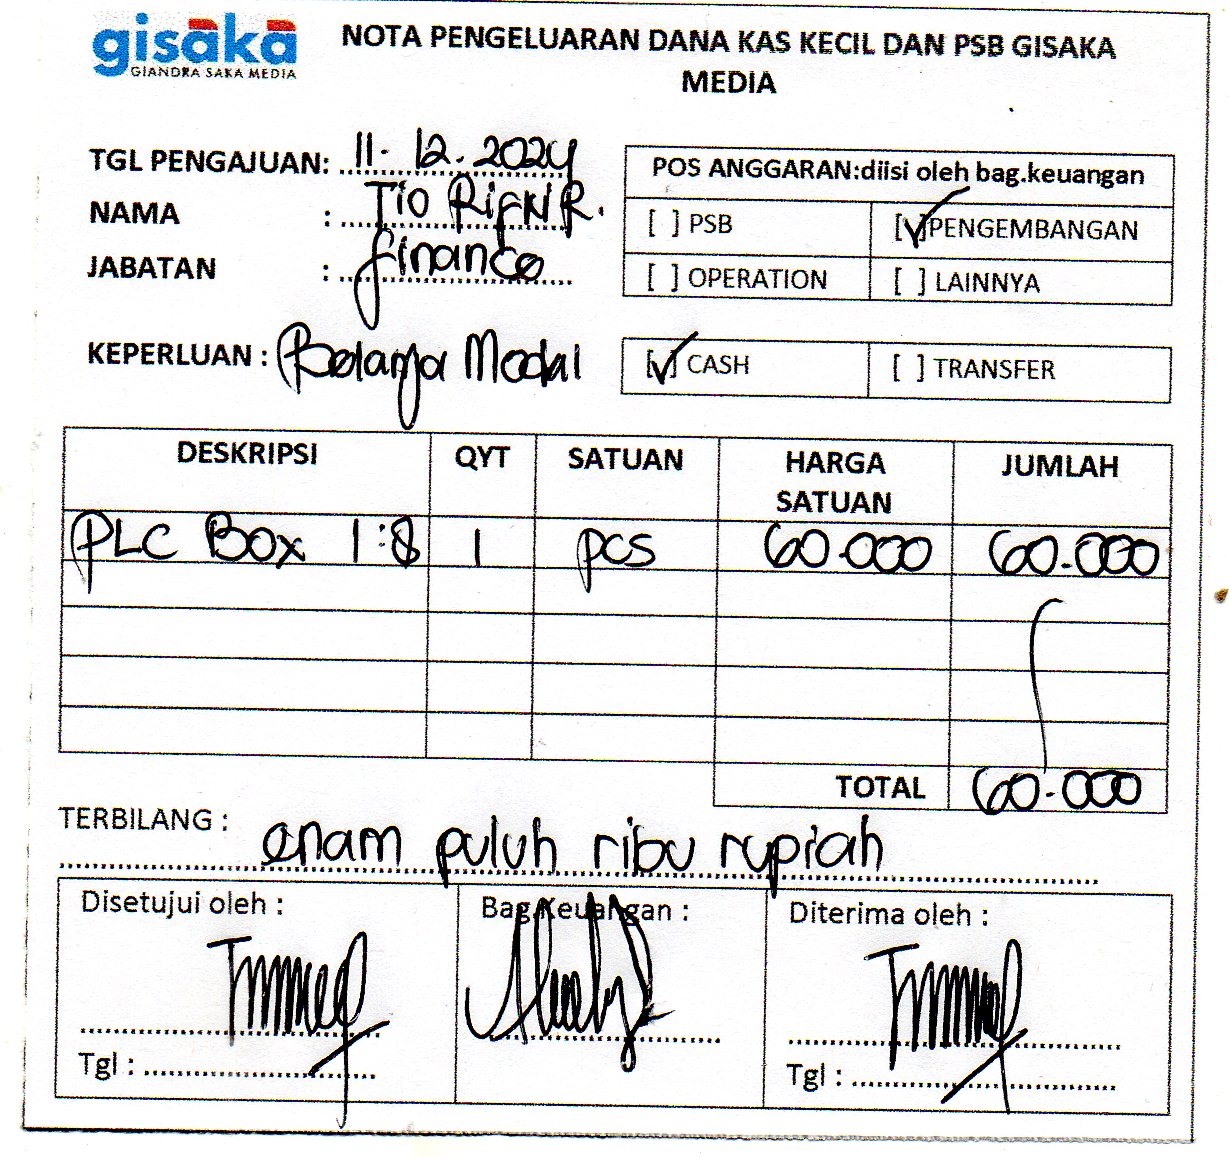 gisaka
GIANDRA SAKA MEDIA
NOTA PENGELUARAN DANA KAS KECIL DAN PSB GISAKA
MEDIA
TGL PENGAJUAN: 11-12.2024
NAMA : Tio Rifki R.
JABATAN : finance
POS ANGGARAN:diisi oleh bag.keuangan
[ ] PSB [✓]PENGEMBANGAN
[ ] OPERATION [ ] LAINNYA
KEPERLUAN : Belanja Modal
[✓] CASH [ ] TRANSFER
DESKRIPSI QYT SATUAN HARGA SATUAN JUMLAH
PLC Box 1:8 1 pcs 60.000 60.000
TOTAL 60.000
TERBILANG : enam puluh ribu rupiah
Disetujui oleh : Bag.Keuangan : Diterima oleh :
Tgl : Tgl :